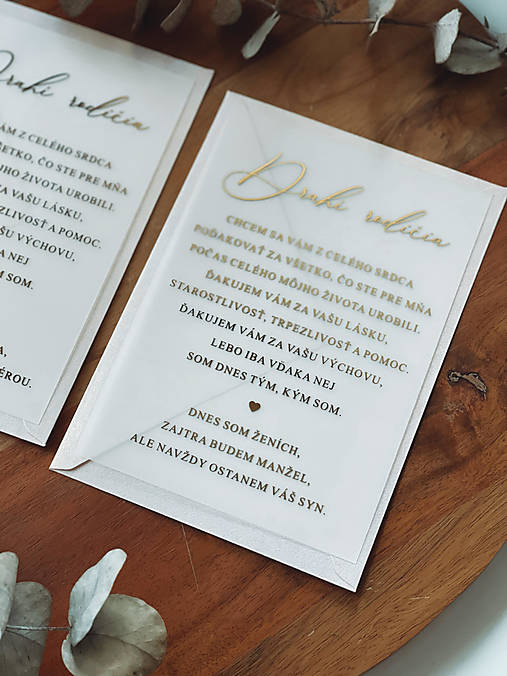 Drahí rodičia
VÁM Z CELÉHO SRDCA
VŠETKO, ČO STE PRE MŇA
MÔJHO ŽIVOTA UROBILI.
VÁM ZA VAŠU LÁSKU,
TRPEZLIVOSŤ A POMOC.
ZA VAŠU VÝCHOVU,
VĎAKA NEJ
KÝM SOM.
Drahí rodičia
CHCEM SA VÁM Z CELÉHO SRDCA
POĎAKOVAŤ ZA VŠETKO, ČO STE PRE MŇA
POČAS CELÉHO MÔJHO ŽIVOTA UROBILI.
ĎAKUJEM VÁM ZA VAŠU LÁSKU,
STAROSTLIVOSŤ, TRPEZLIVOSŤ A POMOC.
ĎAKUJEM VÁM ZA VAŠU VÝCHOVU,
LEBO IBA VĎAKA NEJ
SOM DNES TÝM, KÝM SOM.
DNES SOM ŽENÍCH,
ZAJTRA BUDEM MANŽEL,
ALE NAVŽDY OSTANEM VÁŠ SYN.